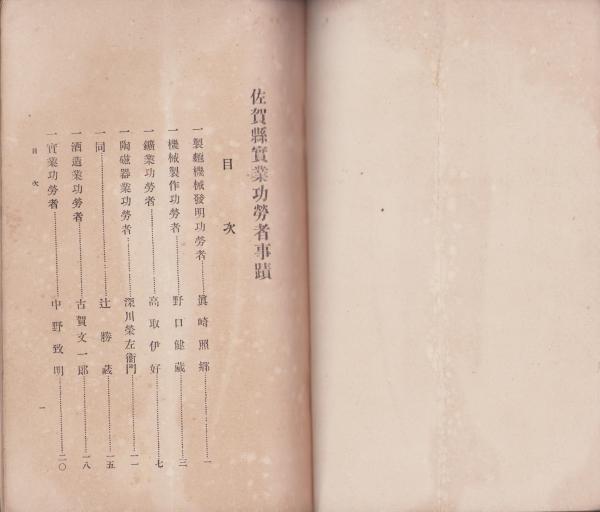 佐賀縣實業功勞者事蹟
目次
一製麵機械發明功勞者………眞崎照鄕………一
一機械製作功勞者………野口健藏………三
一鑛業功勞者………高取伊好………七
一陶磁器業功勞者………深川榮左衞門………一一
一同………辻勝藏………一五
一酒造業功勞者………古賀文一郎………一八
一實業功勞者………中野致明………二〇
目次
一